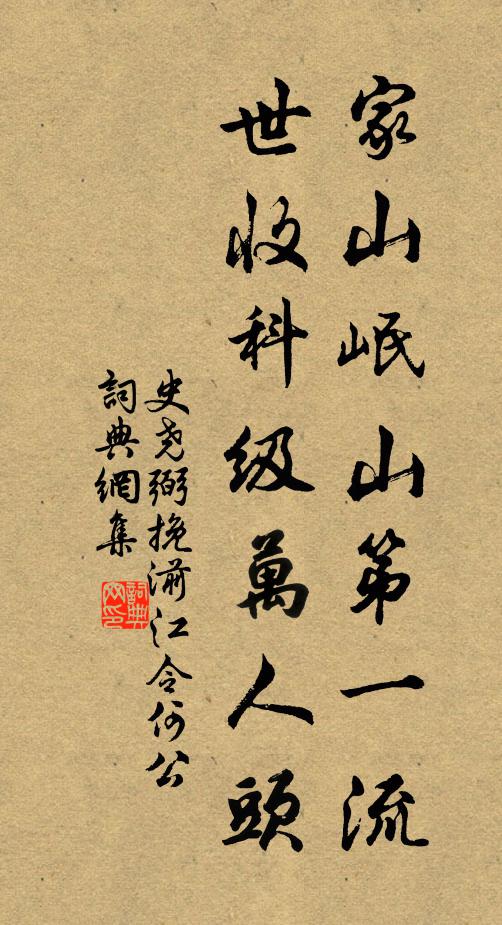 家山岷山第一流
世收科级萬人頭
史堯弼挽湔江令何公
詞典網集
詞典网印